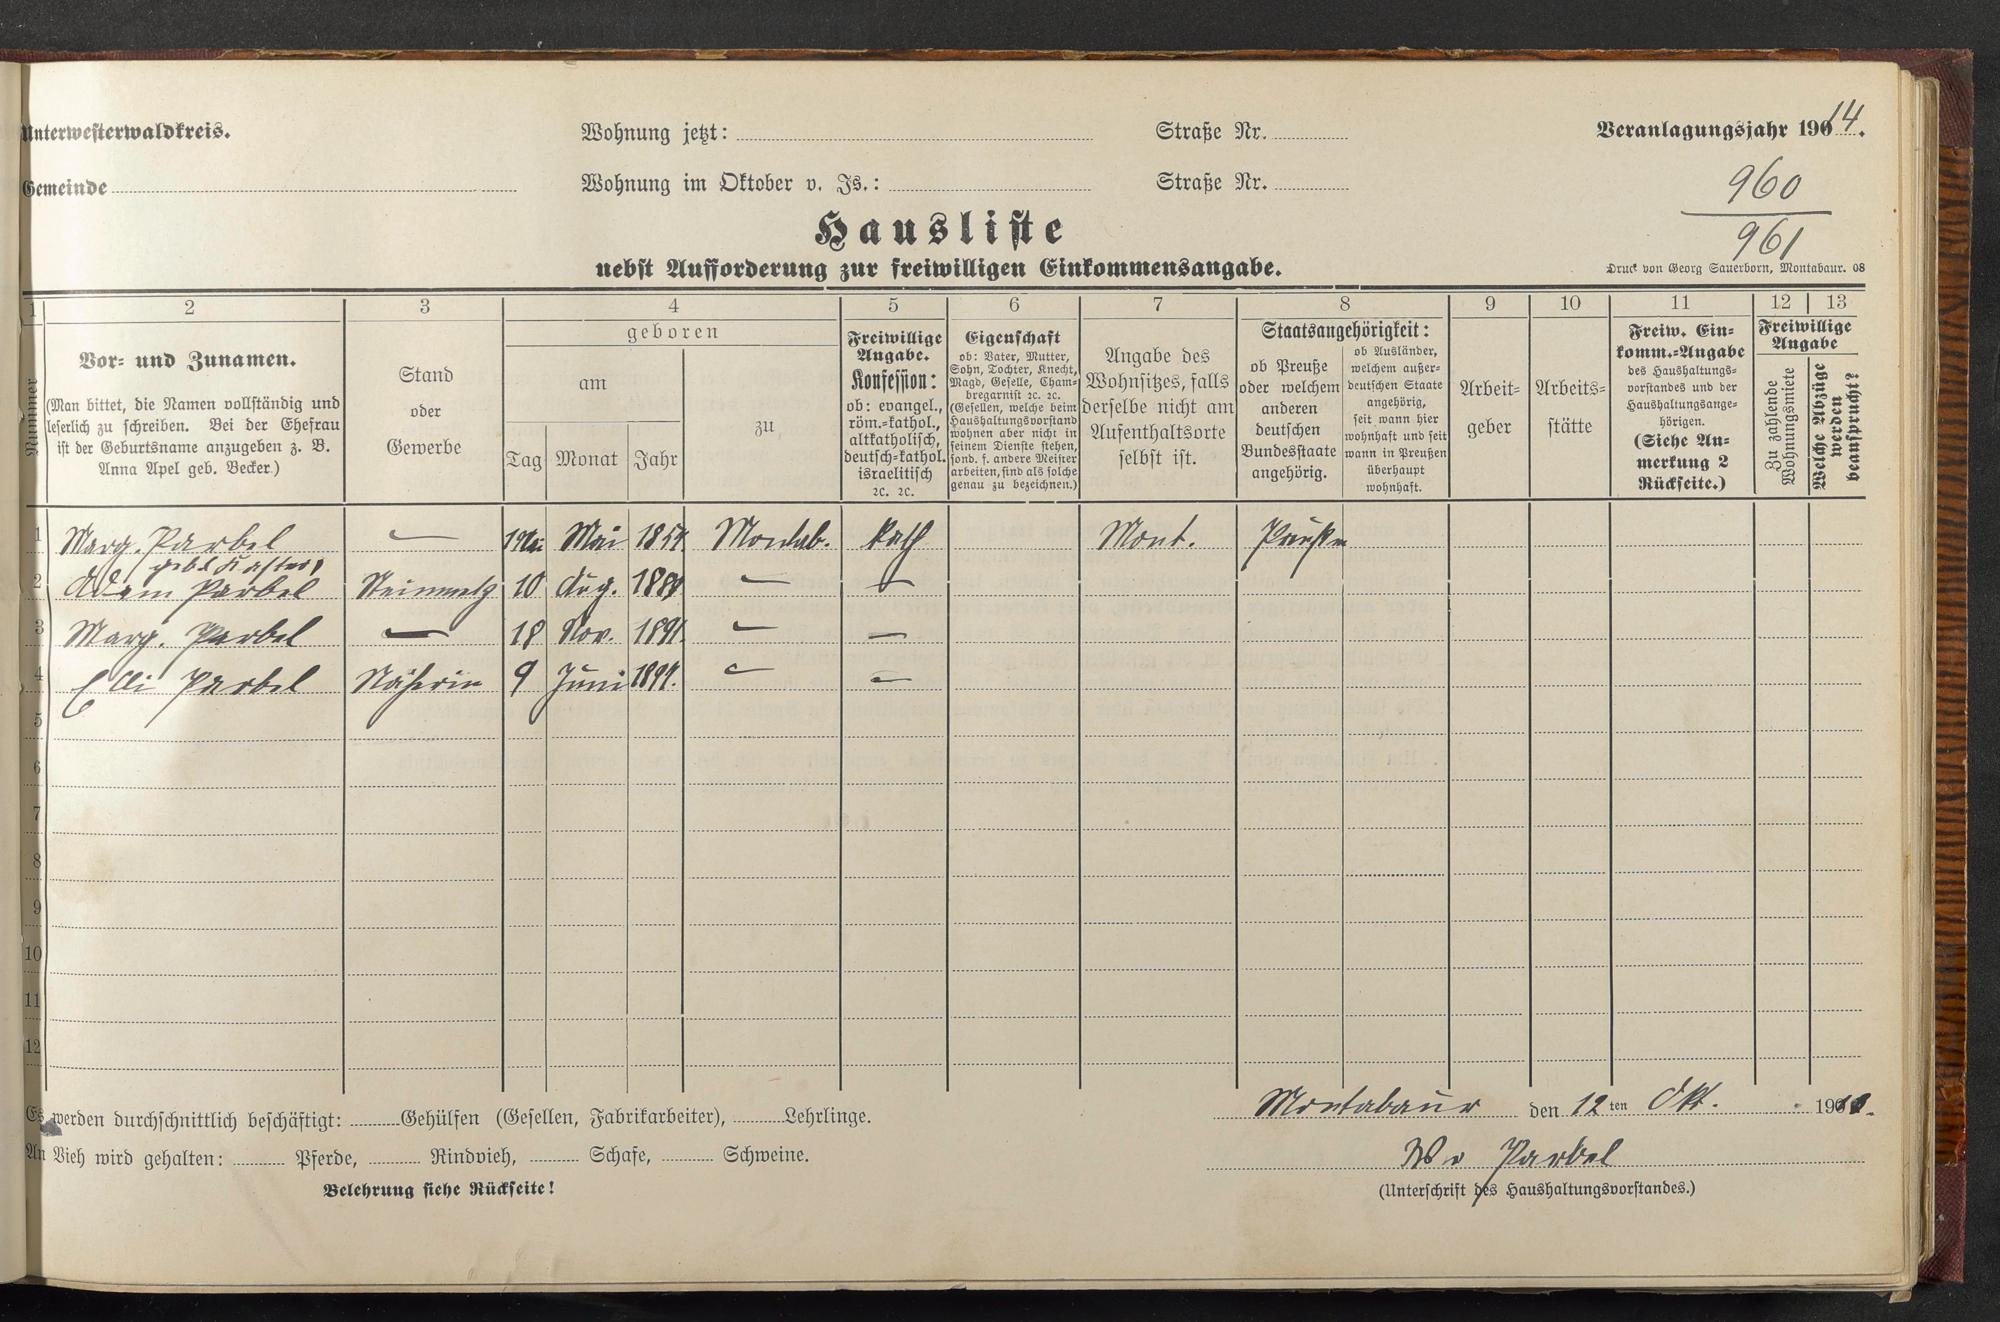 Unterwesterwaldkreis.
Wohnung jetzt: Straße Nr.
Veranlagungsjahr 190 14.
Gemeinde
Wohnung im Oktober v. Js.: Straße Nr.
960
961
Hausliste
nebst Aufforderung zur freiwilligen Einkommensangabe.
Druck von Georg Sauerborn, Montabaur. 08
1 2 3 4 5 6 7 8 9 10 11 12 13
Nummer
Vor- und Zunamen.
(Man bittet, die Namen vollständig und
leserlich zu schreiben. Bei der Ehefrau
ist der Geburtsname anzugeben z. B.
Anna Apel geb. Becker.)
Stand
oder
Gewerbe
geboren
am
Tag Monat Jahr
zu
Freiwillige
Angabe.
Konfession:
ob: evangel.,
röm.-kathol.,
altkatholisch,
deutsch-kathol.
israelitisch
2c. 2c.
Eigenschaft
ob: Vater, Mutter,
Sohn, Tochter, Knecht,
Magd, Geselle, Cham-
bregarnist 2c. 2c.
(Gesellen, welche beim
Haushaltungsvorstand
wohnen aber nicht in
seinem Dienste stehen,
sond. f. andere Meister
arbeiten, sind als solche
genau zu bezeichnen.)
Angabe des
Wohnsitzes, falls
derselbe nicht am
Aufenthaltsorte
selbst ist.
Staatsangehörigkeit:
ob Preuße
oder welchem
anderen
deutschen
Bundesstaate
angehörig.
ob Ausländer,
welchem außer-
deutschen Staate
angehörig,
seit wann hier
wohnhaft und seit
wann in Preußen
überhaupt
wohnhaft.
Arbeit-
geber
Arbeits-
stätte
Freiw. Ein-
komm.-Angabe
des Haushaltungs-
vorstandes und der
Haushaltungsange-
hörigen.
(Siehe An-
merkung 2
Rückseite.)
Freiwillige
Angabe
Zu zahlende
Wohnungsmiete
Welche Abzüge
werden
beansprucht?
1 Marg. Parbel — Mai Montab. kath Mont. Preußen
geb.
2 Adam Parbel Steinmetz 10 Aug. — —
3 Marg. Parbel — 18 Nov. 1891. — —
4 Elli Parbel Näherin 9 Juni — —
5
6
7
8
9
10
11
12
Es werden durchschnittlich beschäftigt: Gehülfen (Gesellen, Fabrikarbeiter), Lehrlinge.
Montabaur den 12 ten Okt. 190
An Vieh wird gehalten: Pferde, Rindvieh, Schafe, Schweine.
Parbel
Belehrung siehe Rückseite!
(Unterschrift des Haushaltungsvorstandes.)